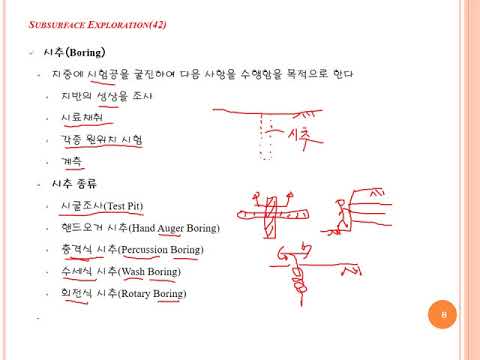 SUBSURFACE EXPLORATION(42)
시추(Boring)
지중에 시험공을 굴진하여 다음 사항을 수행함을 목적으로 한다
지반의 성상을 조사
시료채취
각종 원위치 시험
계측
시추
시추 종류
시굴조사(Test Pit)
핸드오거 시추(Hand Auger Boring)
충격식 시추(Percussion Boring)
수세식 시추(Wash Boring)
회전식 시추(Rotary Boring)
8